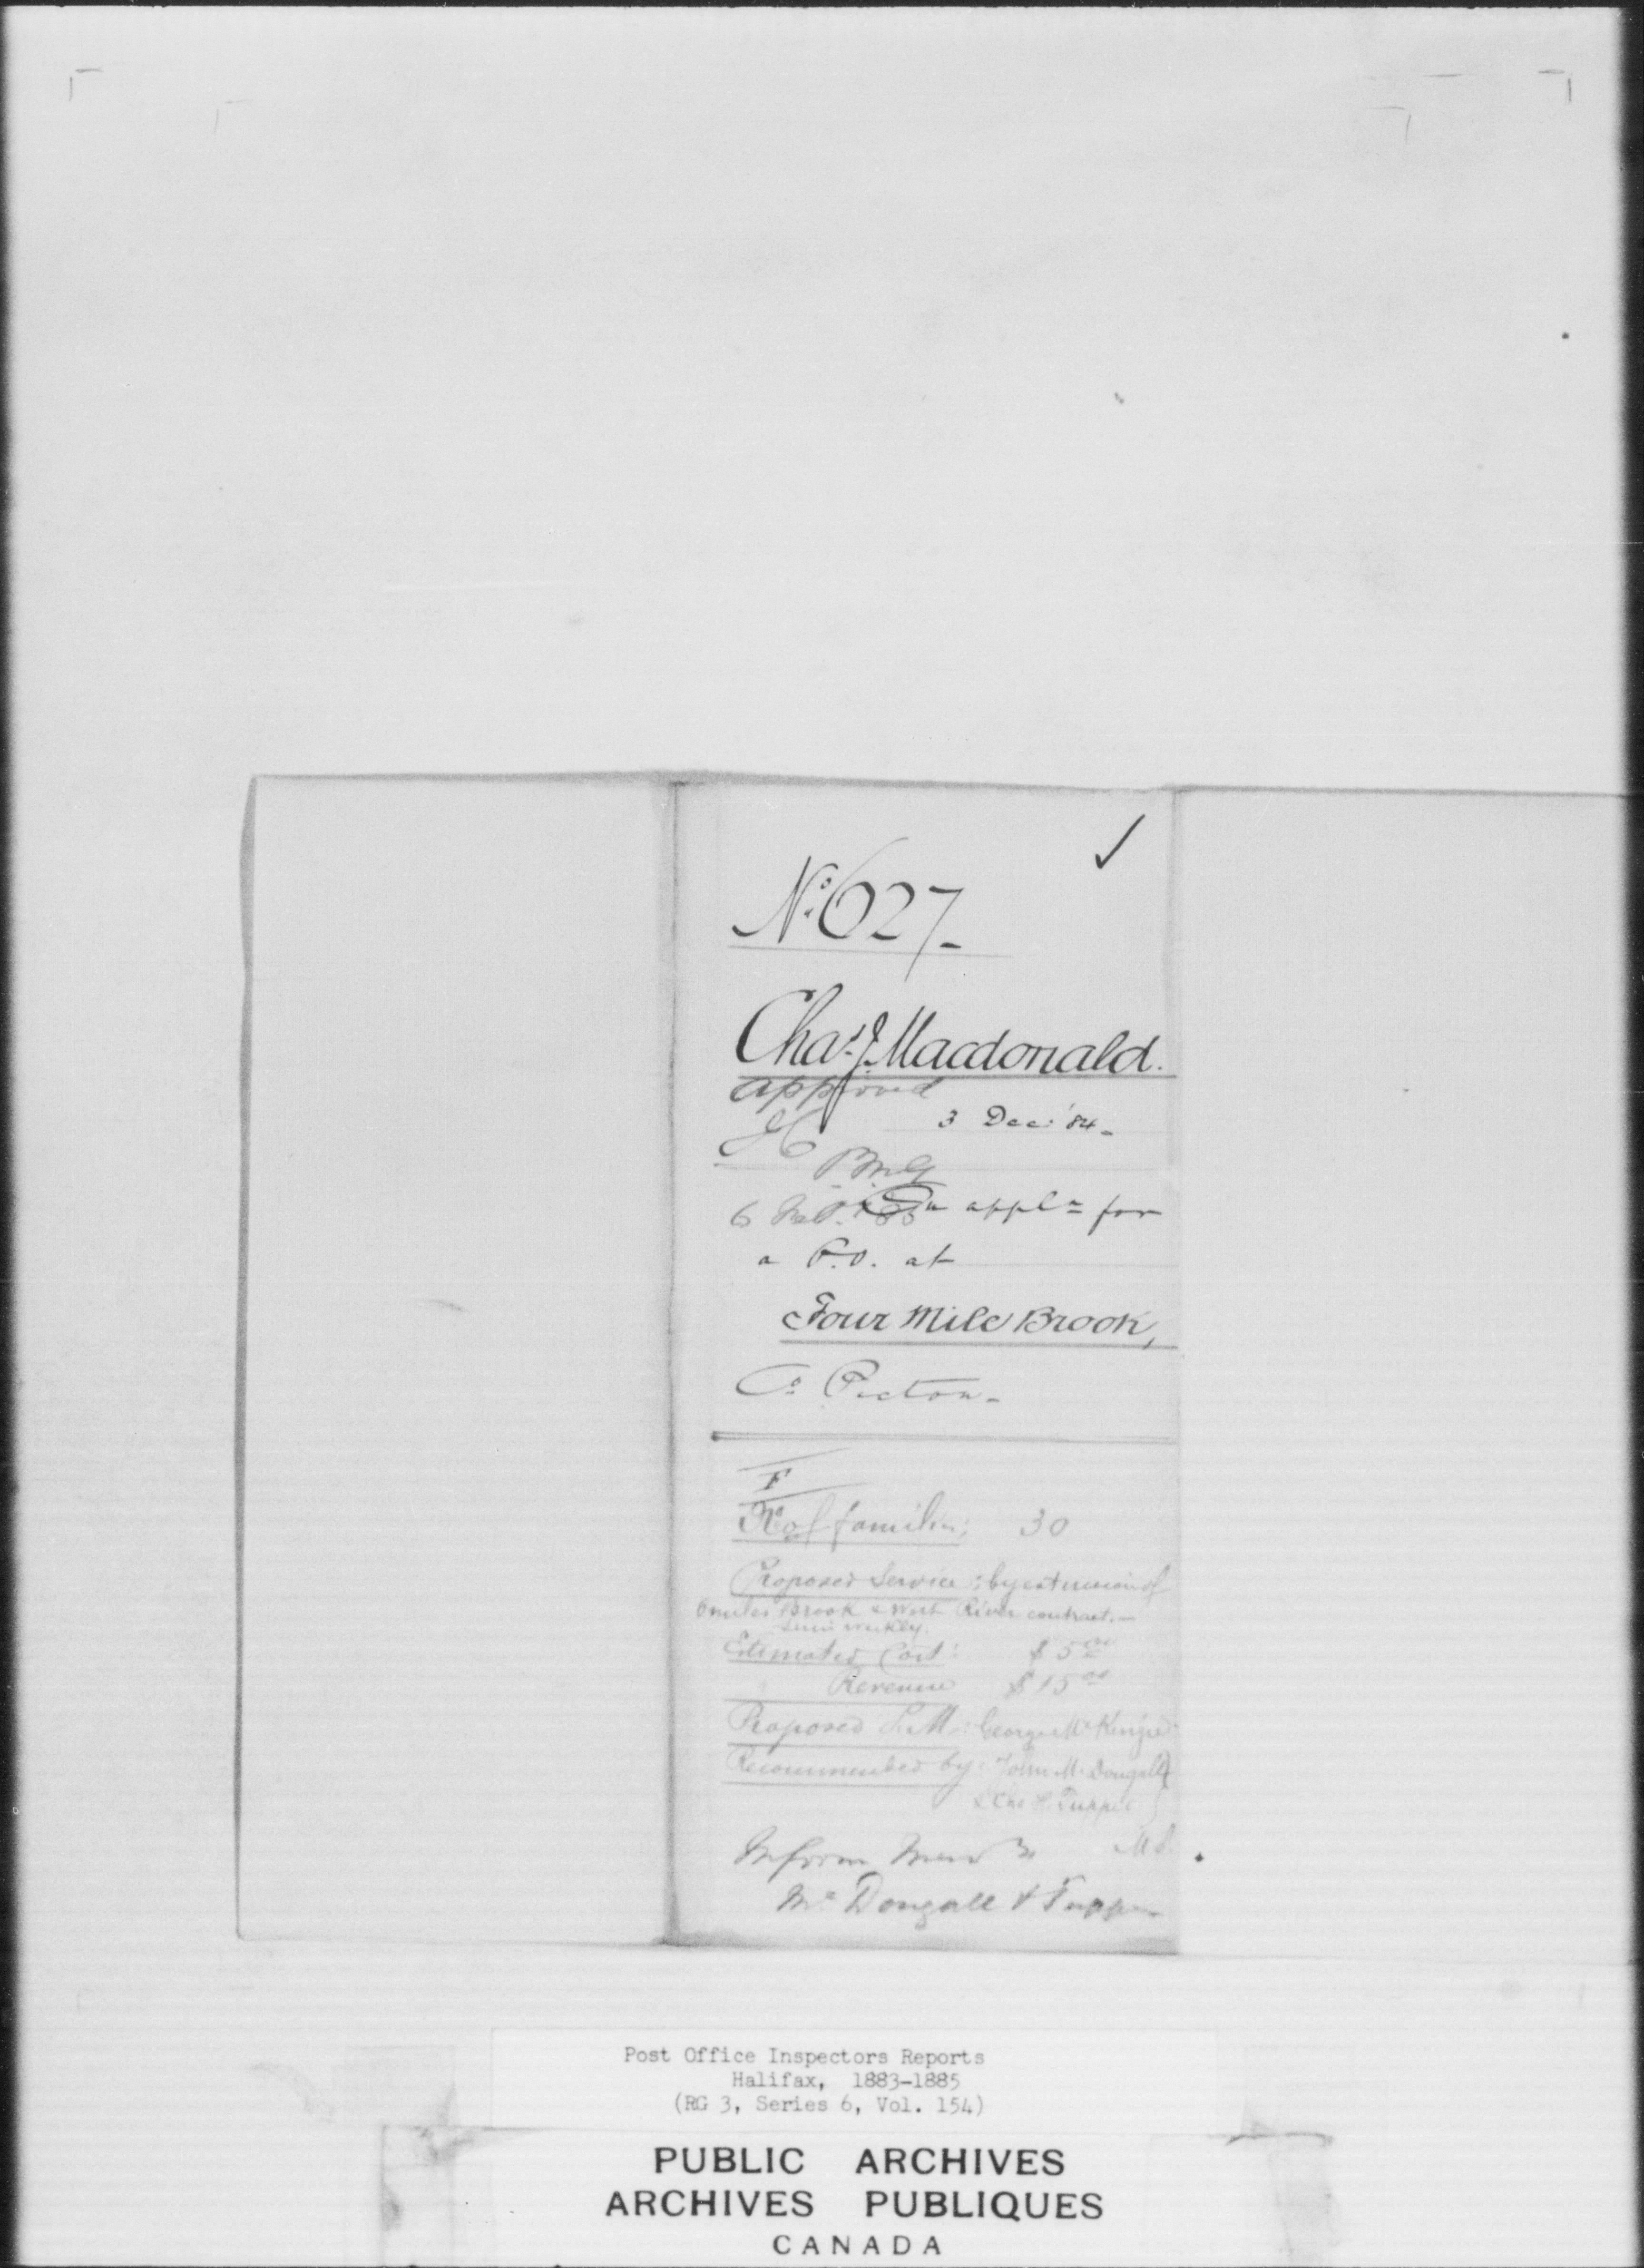 ✓
No. 627-
Chas. J. Macdonald.
approved
3 Dec: '84-
JC
PMG
6 Feb. '85 On appln for
a P.O. at
Four Mile Brook,
Co. Pictou-
F
No of families; 30
Proposed Service: by extension of
6 miles Brook & West River contract.-
Semi weekly.
Estimated Cost: $5 00
" Revenue $15 00
Proposed P.M.: George McKenzie
Recommended by: John McDougall
& Chs H. Tupper
M.P.
Inform Messrs
McDougall & Tupper
Post Office Inspectors Reports
Halifax, 1883-1885
(RG 3, Series 6, Vol. 154)
PUBLIC ARCHIVES
ARCHIVES PUBLIQUES
CANADA